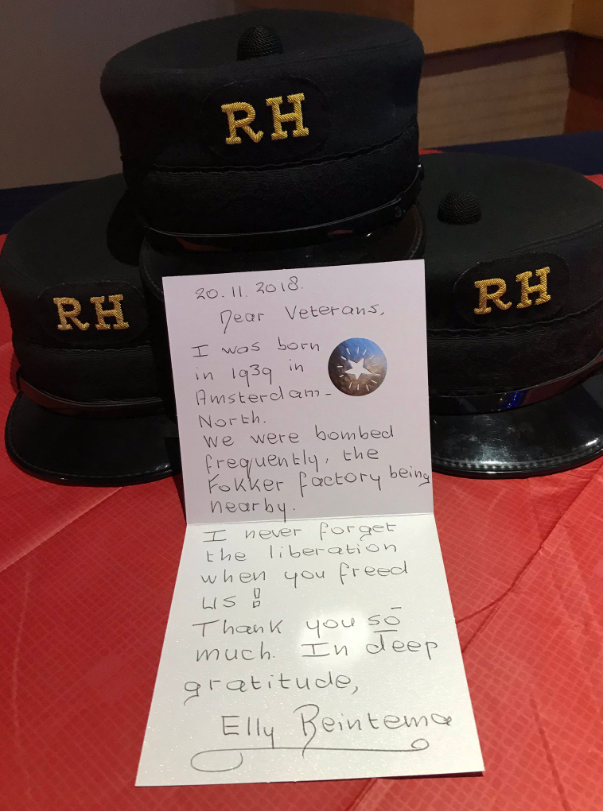 RH
RH
RH
20.11.2018.
Dear Veterans,
I was born
in 1939 in
Amsterdam-
North.
We were bombed
frequently, the
Fokker factory being
nearby.
I never forget
the liberation
when you freed
us!
Thank you so
much. In deep
gratitude,
Elly Reintema